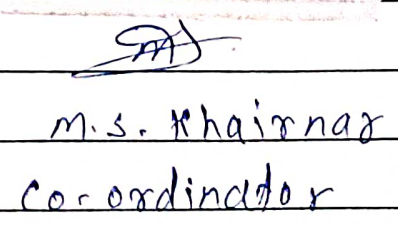 M.S. Khairnar
Co-ordinator